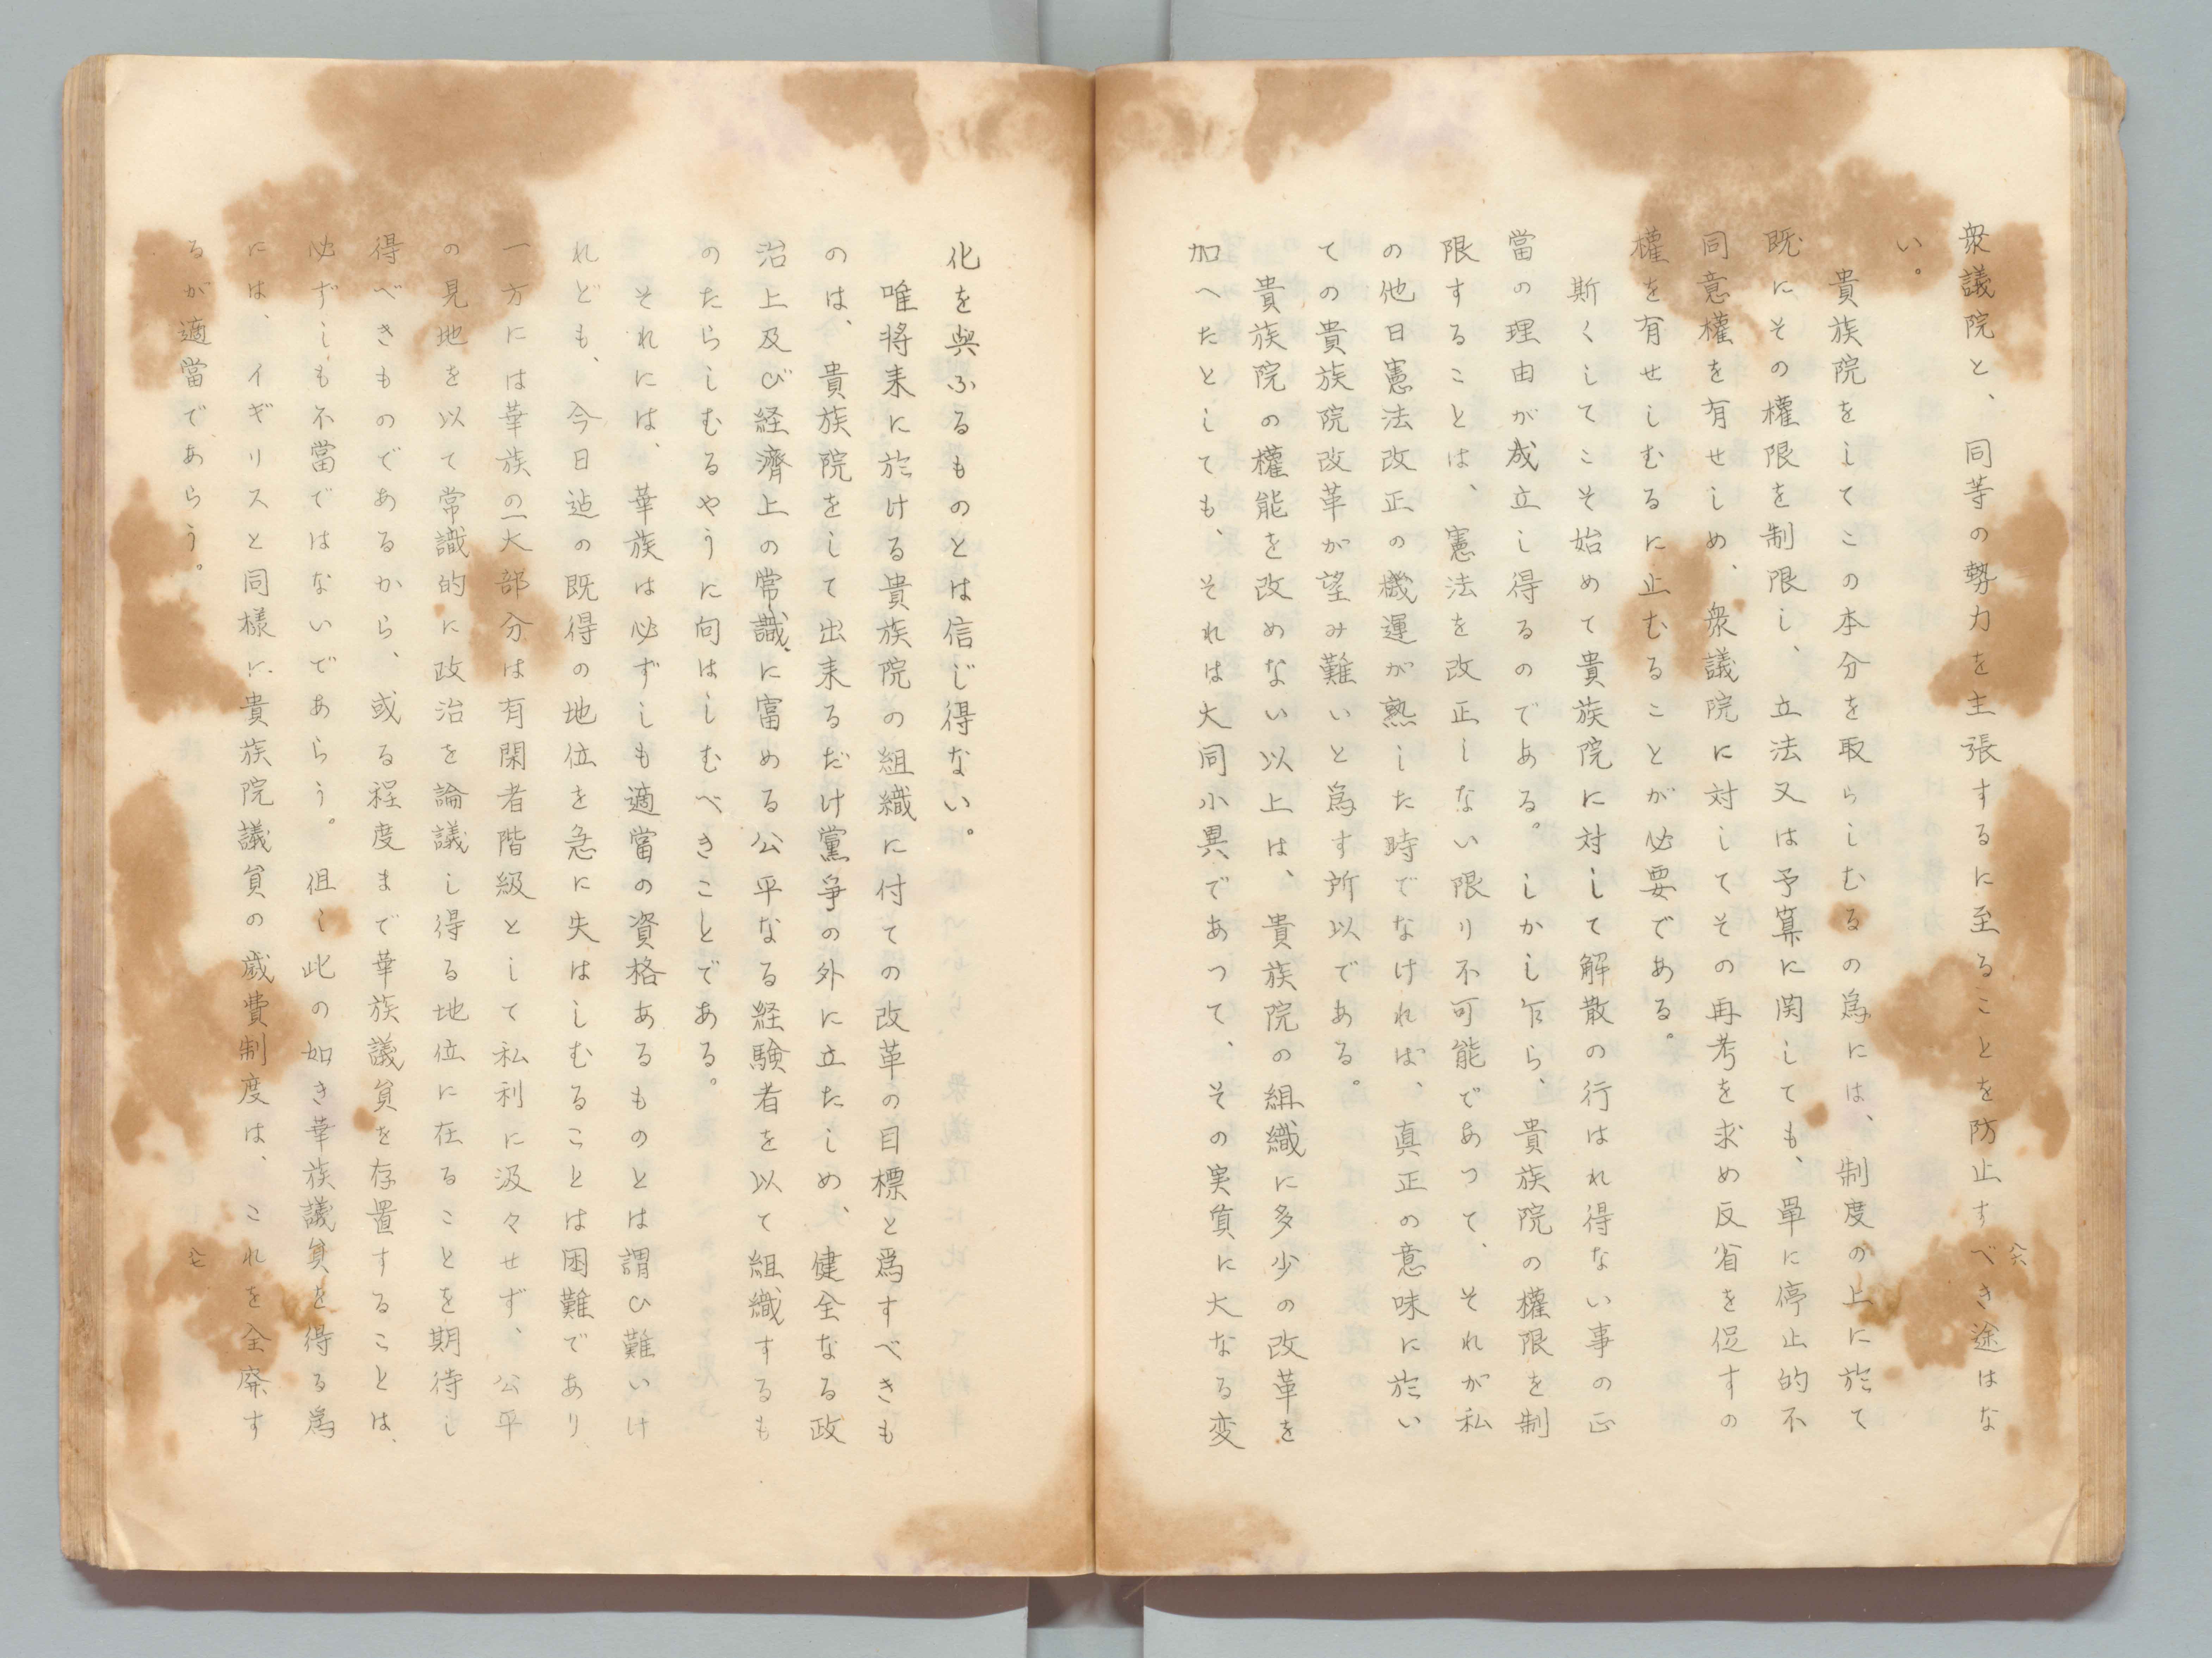 衆議院と、同等の勢力を主張するに至ることを防止すべき途はな
い。
貴族院をしてこの本分を取らしむるの爲には、制度の上に於て
既にその權限を制限し、立法又は予算に関しても、單に停止的不
同意權を有せしめ、衆議院に対してその再考を求め反省を促すの
權を有せしむるに止むることが必要である。
斯くしてこそ始めて貴族院に対して解散の行はれ得ない事の正
當の理由が成立し得るのである。しかし乍ら、貴族院の權限を制
限することは、憲法を改正しない限り不可能であつて、それが私
の他日憲法改正の機運が熟した時でなければ、真正の意味に於い
ての貴族院改革が望み難いと爲す所以である。
貴族院の權能を改めない以上は、貴族院の組織に多少の改革を
加へたとしても、それは大同小異であつて、その実質に大なる変
六六
化を與ふるものとは信じ得ない。
唯将来に於ける貴族院の組織に付ての改革の目標と爲すべきも
のは、貴族院をして出来るだけ黨爭の外に立たしめ、健全なる政
治上及び経濟上の常識に富める公平なる経験者を以て組織するも
のたらしむるやうに向はしむべきことである。
それには、華族は必ずしも適當の資格あるものとは謂ひ難いけ
れども、今日迠の既得の地位を急に失はしむることは困難であり
一方には華族の一大部分は有閑者階級として私利に汲々せず、公平
の見地を以て常識的に政治を論議し得る地位に在ることを期待し
得べきものであるから、或る程度まで華族議員を存置することは、
必ずしも不當ではないであらう。但し此の如き華族議員を得る爲
には、イギリスと同様に貴族院議員の歳費制度は、これを全廃す
るが適當であらう。
六七